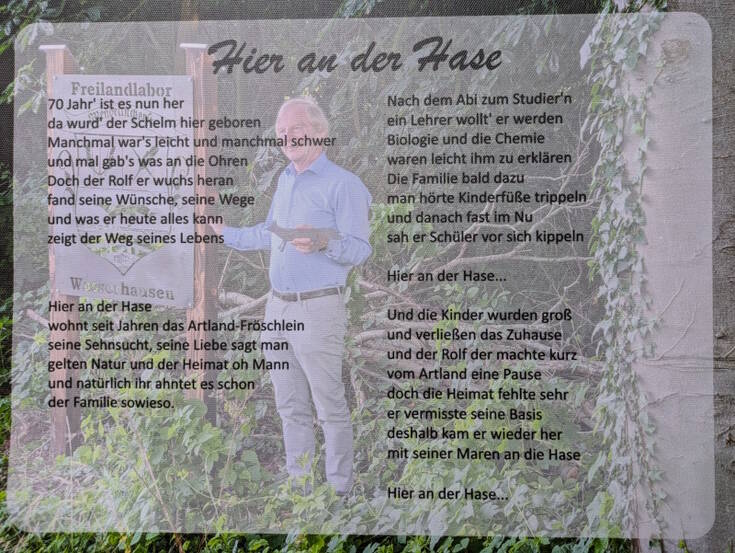 Hier an der Hase
Freilandlabor
70 Jahr' ist es nun her
da wurd' der Schelm hier geboren
Manchmal war's leicht und manchmal schwer
und mal gab's was an die Ohren
Doch der Rolf er wuchs heran
fand seine Wünsche, seine Wege
und was er heute alles kann
zeigt der Weg seines Lebens
Wasserhausen
Hier an der Hase
wohnt seit Jahren das Artland-Fröschlein
seine Sehnsucht, seine Liebe sagt man
gelten Natur und der Heimat oh Mann
und natürlich ihr ahntet es schon
der Familie sowieso.
Nach dem Abi zum Studier'n
ein Lehrer wollt' er werden
Biologie und die Chemie
waren leicht ihm zu erklären
Die Familie bald dazu
man hörte Kinderfüße trippeln
und danach fast im Nu
sah er Schüler vor sich kippeln
Hier an der Hase...
Und die Kinder wurden groß
und verließen das Zuhause
und der Rolf der machte kurz
vom Artland eine Pause
doch die Heimat fehlte sehr
er vermisste seine Basis
deshalb kam er wieder her
mit seiner Maren an die Hase
Hier an der Hase...